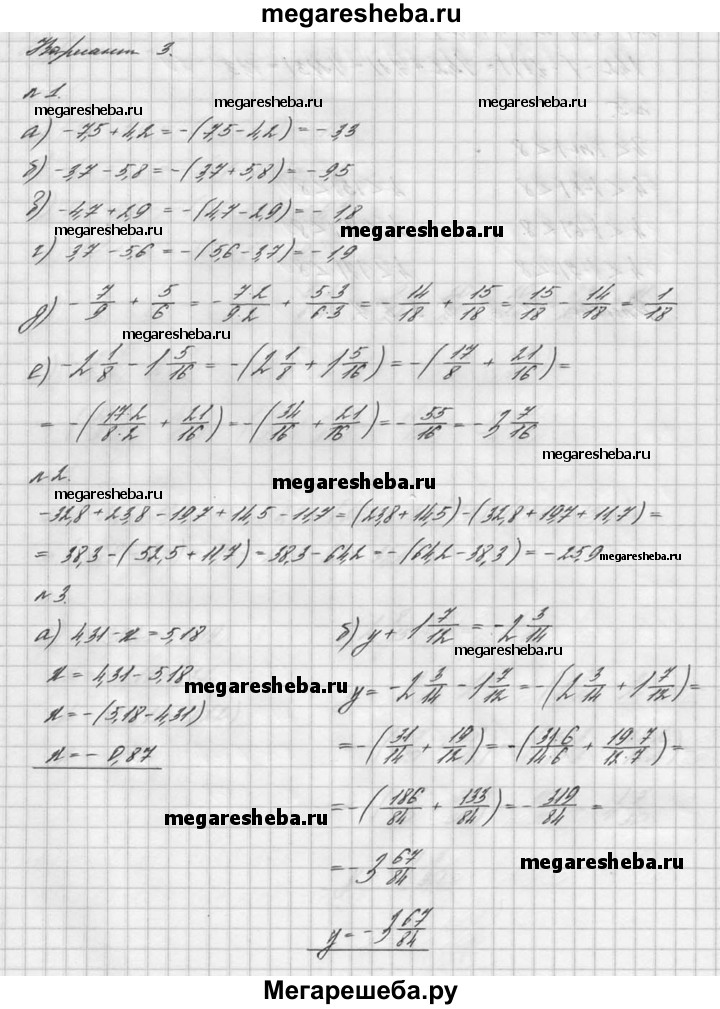 megaresheba.ru
Вариант 3.
№1.
megaresheba.ru megaresheba.ru megaresheba.ru
а) -7,5+4,2=-(7,5-4,2)=-3,3
б) -3,7-5,8=-(3,7+5,8)=-9,5
в) -4,7+2,9=-(4,7-2,9)=-1,8
megaresheba.ru megaresheba.ru
г) 3,7-5,6=-(5,6-3,7)=-1,9
д) -7/9 + 5/6 = -7·2/9·2 + 5·3/6·3 = -14/18 + 15/18 = 15/18 - 14/18 = 1/18
megaresheba.ru
е) -2 1/8 - 1 5/16 = -(2 1/8 + 1 5/16) = -(17/8 + 21/16) =
= -(17·2/8·2 + 21/16) = -(34/16 + 21/16) = -55/16 = -3 7/16
megaresheba.ru
№2.
megaresheba.ru
megaresheba.ru
-32,8+23,8-19,7+14,5-11,7=(23,8+14,5)-(32,8+19,7+11,7)=
= 38,3-(52,5+11,7)=38,3-64,2=-(64,2-38,3)=-25,9
megaresheba.ru
№3.
а) 4,31-x=5,18
x=4,31-5,18
x=-(5,18-4,31)
x=-0,87
megaresheba.ru
megaresheba.ru
megaresheba.ru
б) y + 1 7/12 = -2 3/14
megaresheba.ru
y = -2 3/14 - 1 7/12 = -(2 3/14 + 1 7/12) =
= -(31/14 + 19/12) = -(31·6/14·6 + 19·7/12·7) =
= -(186/84 + 133/84) = -319/84 =
= -3 67/84
megaresheba.ru
y = -3 67/84
Мегарешеба.ру